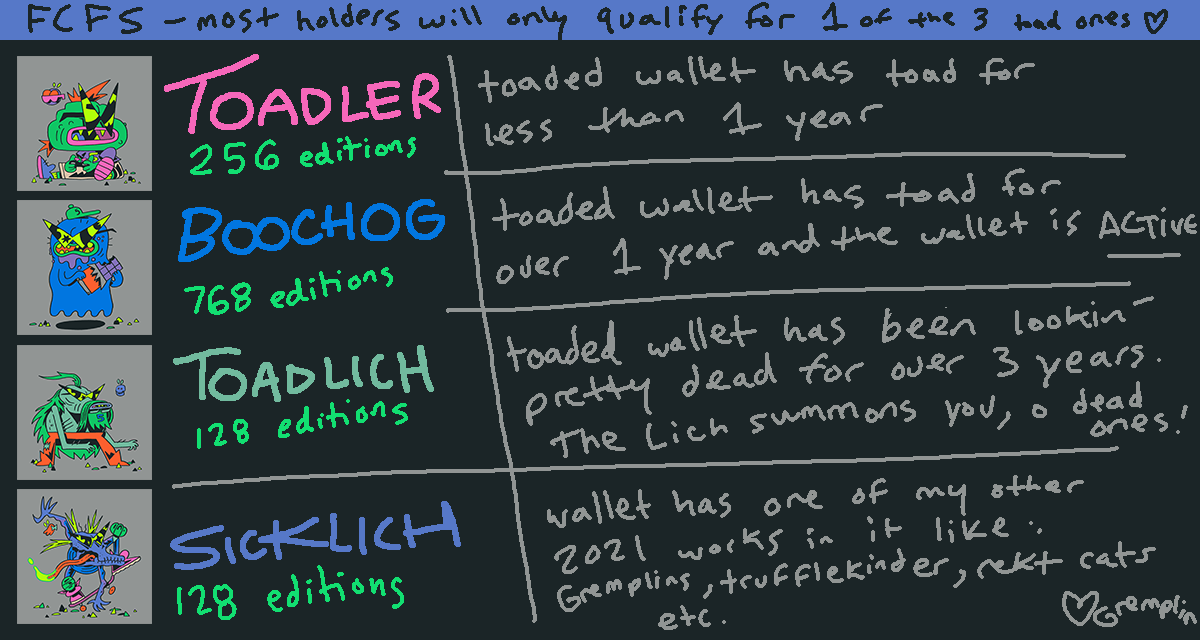 FCFS - most holders will only qualify for 1 of the 3 toad ones ♡
TOADLER
256 editions
toaded wallet has toad for
less than 1 year
BOOCHOG
768 editions
toaded wallet has toad for
over 1 year and the wallet is ACTIVE
TOADLICH
128 editions
toaded wallet has been lookin-
pretty dead for over 3 years.
The Lich summons you, o dead
ones!
SICKLICH
128 editions
wallet has one of my other
2021 works in it like:
Gremplins, trufflekinder, rekt cats
etc.
♡Gremplin